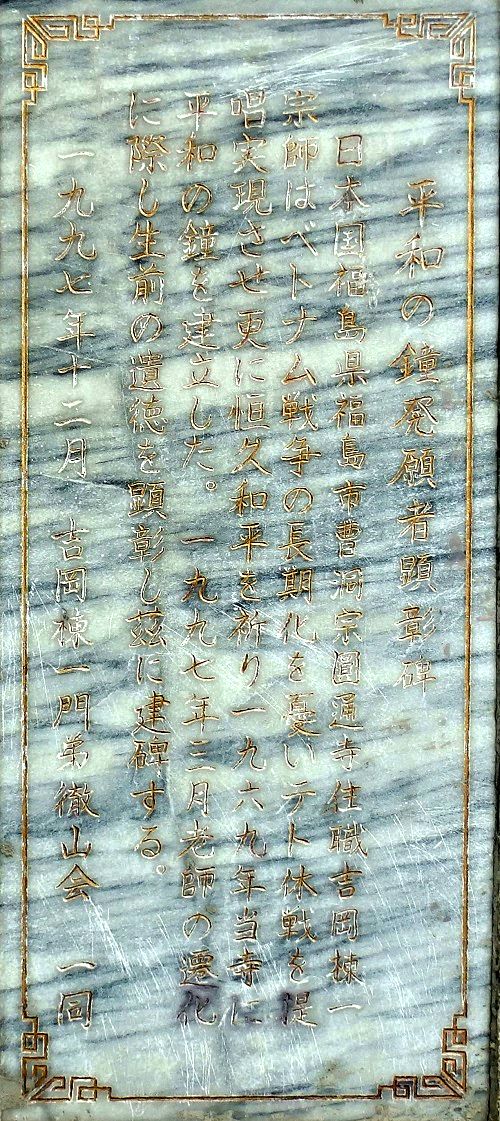 平和の鐘発願者顕彰碑
日本国福島県福島市曹洞宗圓通寺住職吉岡棟一
宗師はベトナム戦争の長期化を憂いテト休戦を提
唱実現させ更に恒久和平を祈り一九六九年当寺に
平和の鐘を建立した。一九九七年三月老師の遷化
に際し生前の遺徳を顕彰し茲に建碑する。
一九九七年十二月 吉岡棟一門弟徹山会 一同